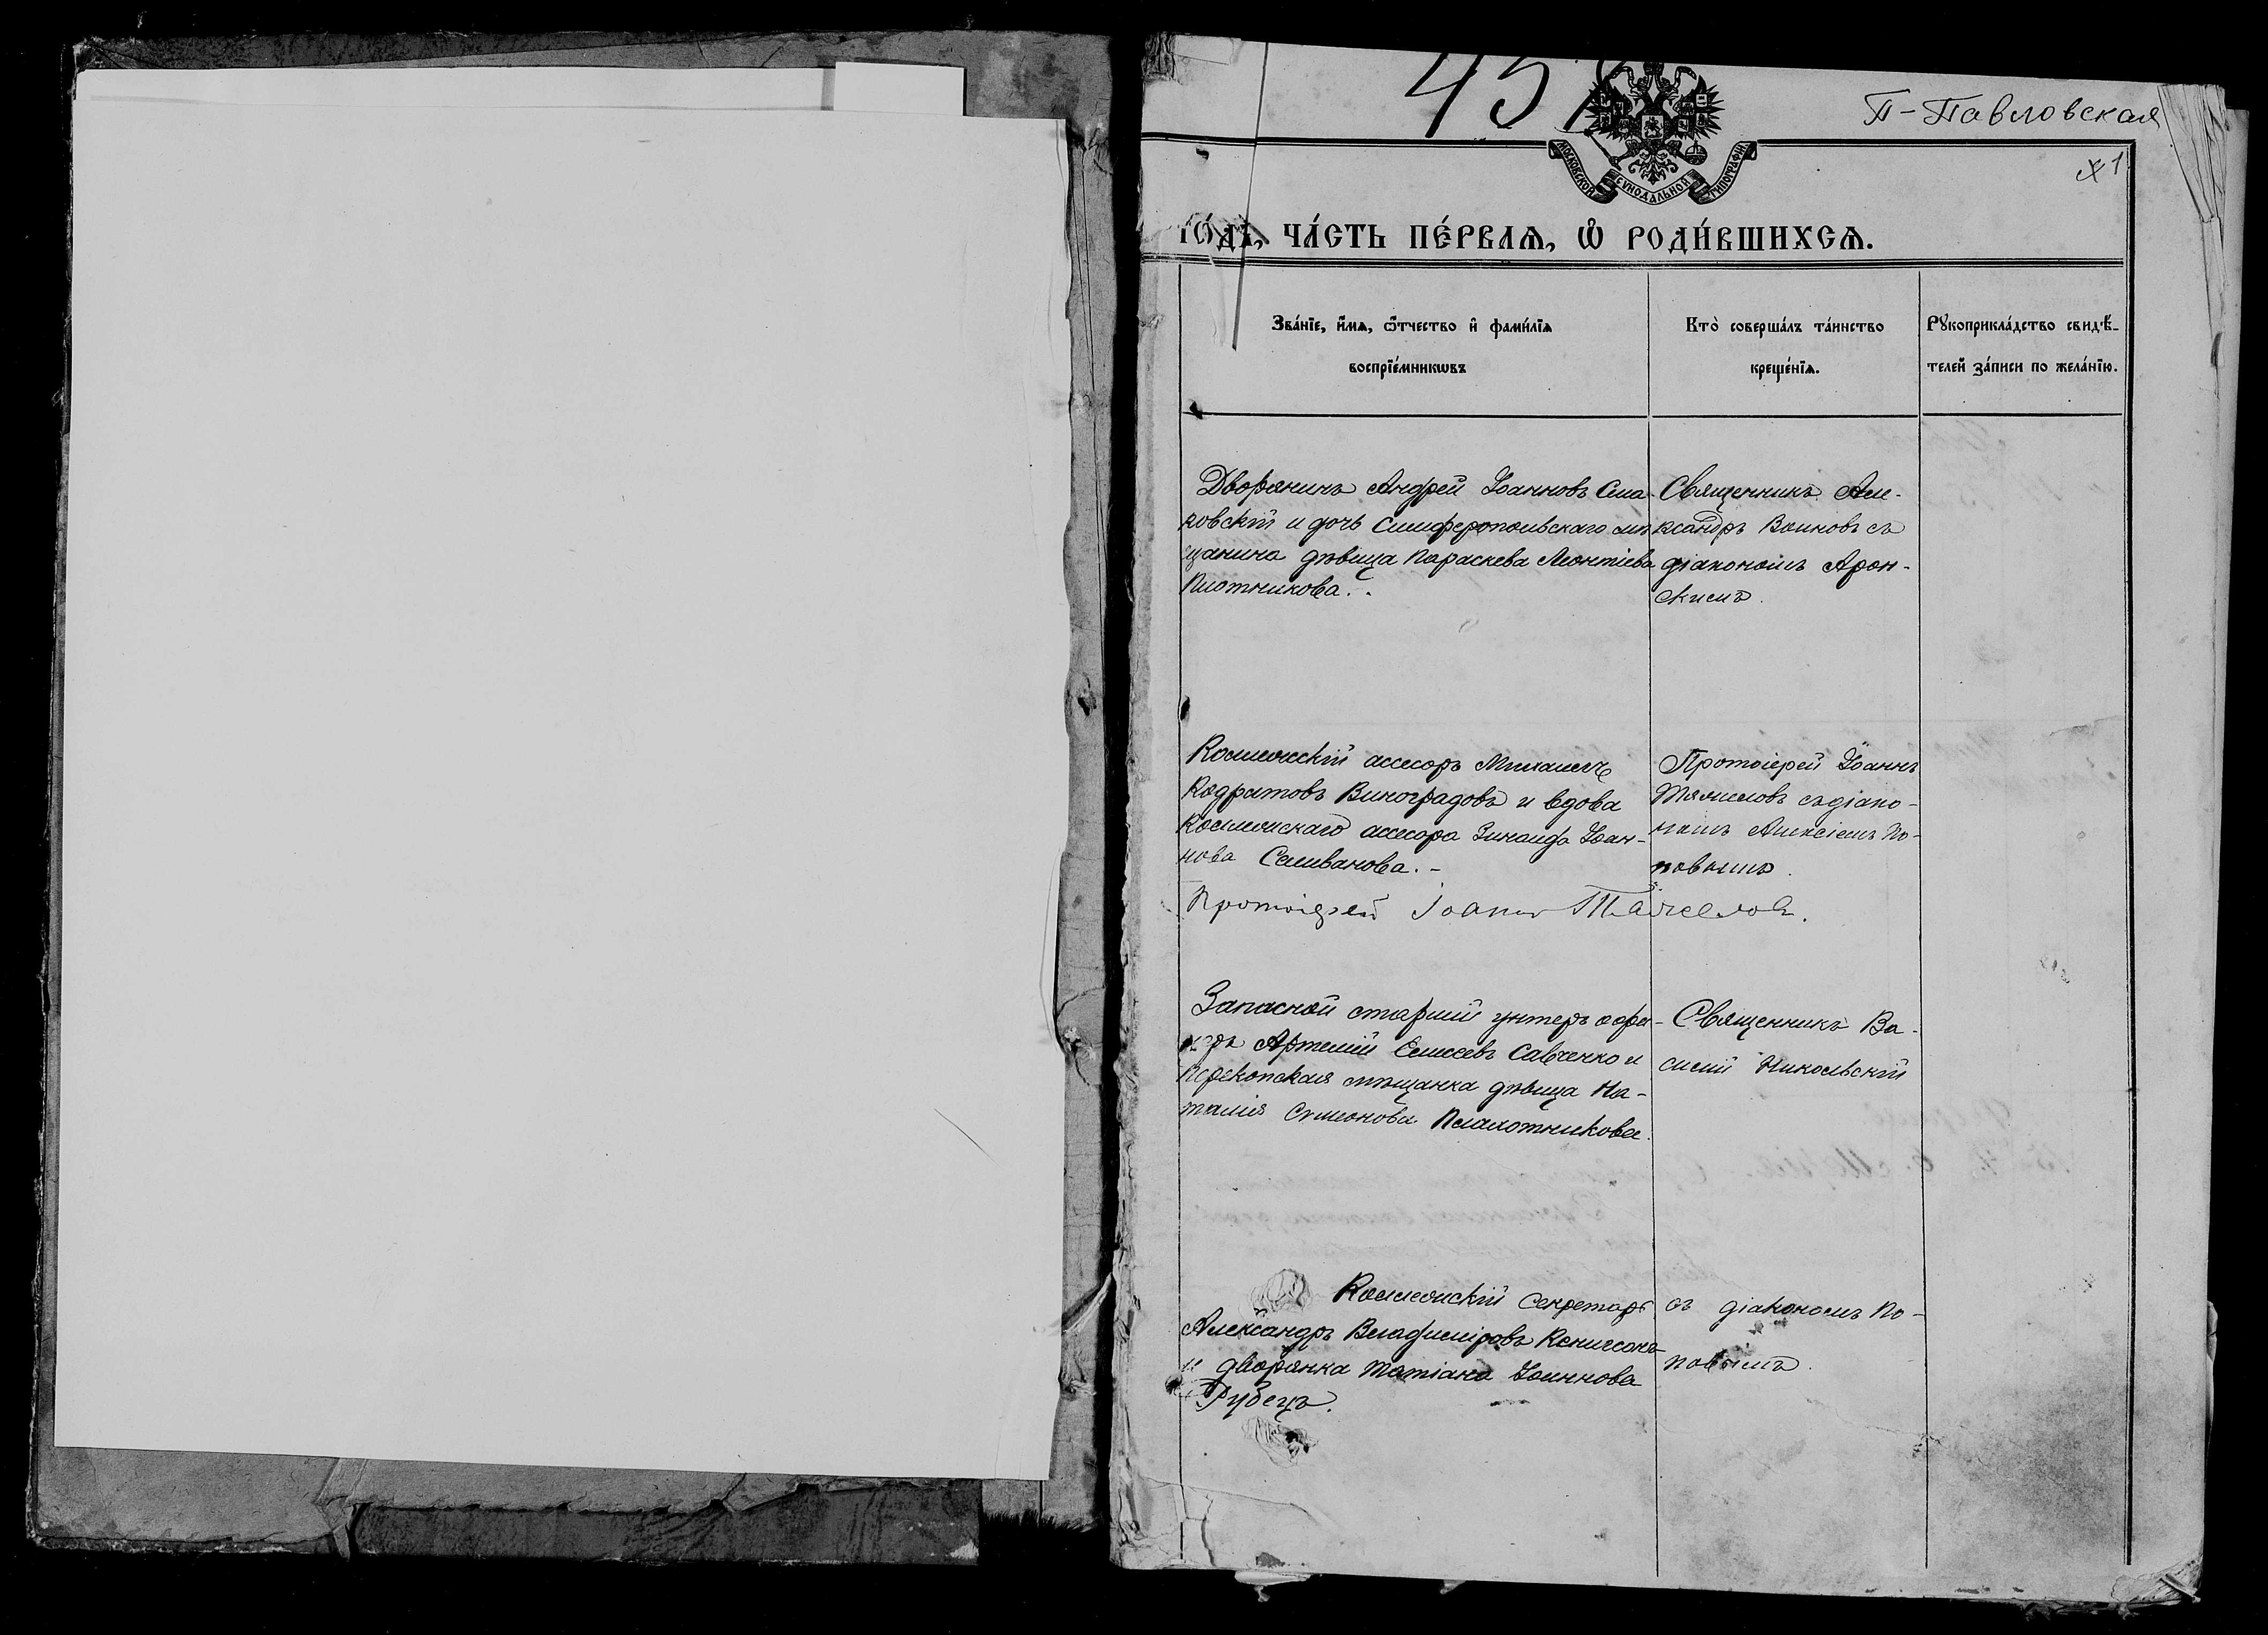 45
П-Павловская
МОСКОВСКОЙ СѴНОДАЛЬНОЙ ТИПОГРАФІИ
1
ГО́ДЪ, ЧА́СТЬ ПЕ́РВАѦ, Ѽ РОДИ́ВШИХСѦ.
Зва́нїе, и҆́мѧ, ѻ҆́тчество и҆ фами́лїѧ
воспрїе́мникѡвъ
Кто̀ соверша́лъ та́инство
креще́нїѧ.
Рꙋкоприкла́дство свидѣ́-
телей за́писи по жела́нїю.
Дворянинъ Андрей Іоанновъ Сма-
ковскій и дочь Симферопольскаго мѣ
щанина дѣвица Параскева Леонтіева
Плотникова.
Священникъ Але-
ксандръ Волковъ съ
діакономъ Арон-
скимъ.
Коллежскій ассесоръ Михаилъ
Кодратовъ Виноградовъ и вдова
Коллежскаго ассесора Зинаида Іоан-
нова Селиванова. -
Протоіерей Іоаннъ
Тяжеловъ съ діако-
номъ Алексіемъ По-
повымъ.
Протоіерей Іоаннъ Тяжеловъ.
Запасной старшій унтеръ офи-
церъ Артемій Елисеевъ Савченко и
Перекопская мѣщанка дѣвица На-
талія Симеонова Плахотникова.
Священникъ Ва-
силій Никольскій
Коллежскій Секретарь
Александръ Владиміровъ
и дворянка Татіана Іоаннова
Рубецъ.
съ діакономъ По-
повымъ.